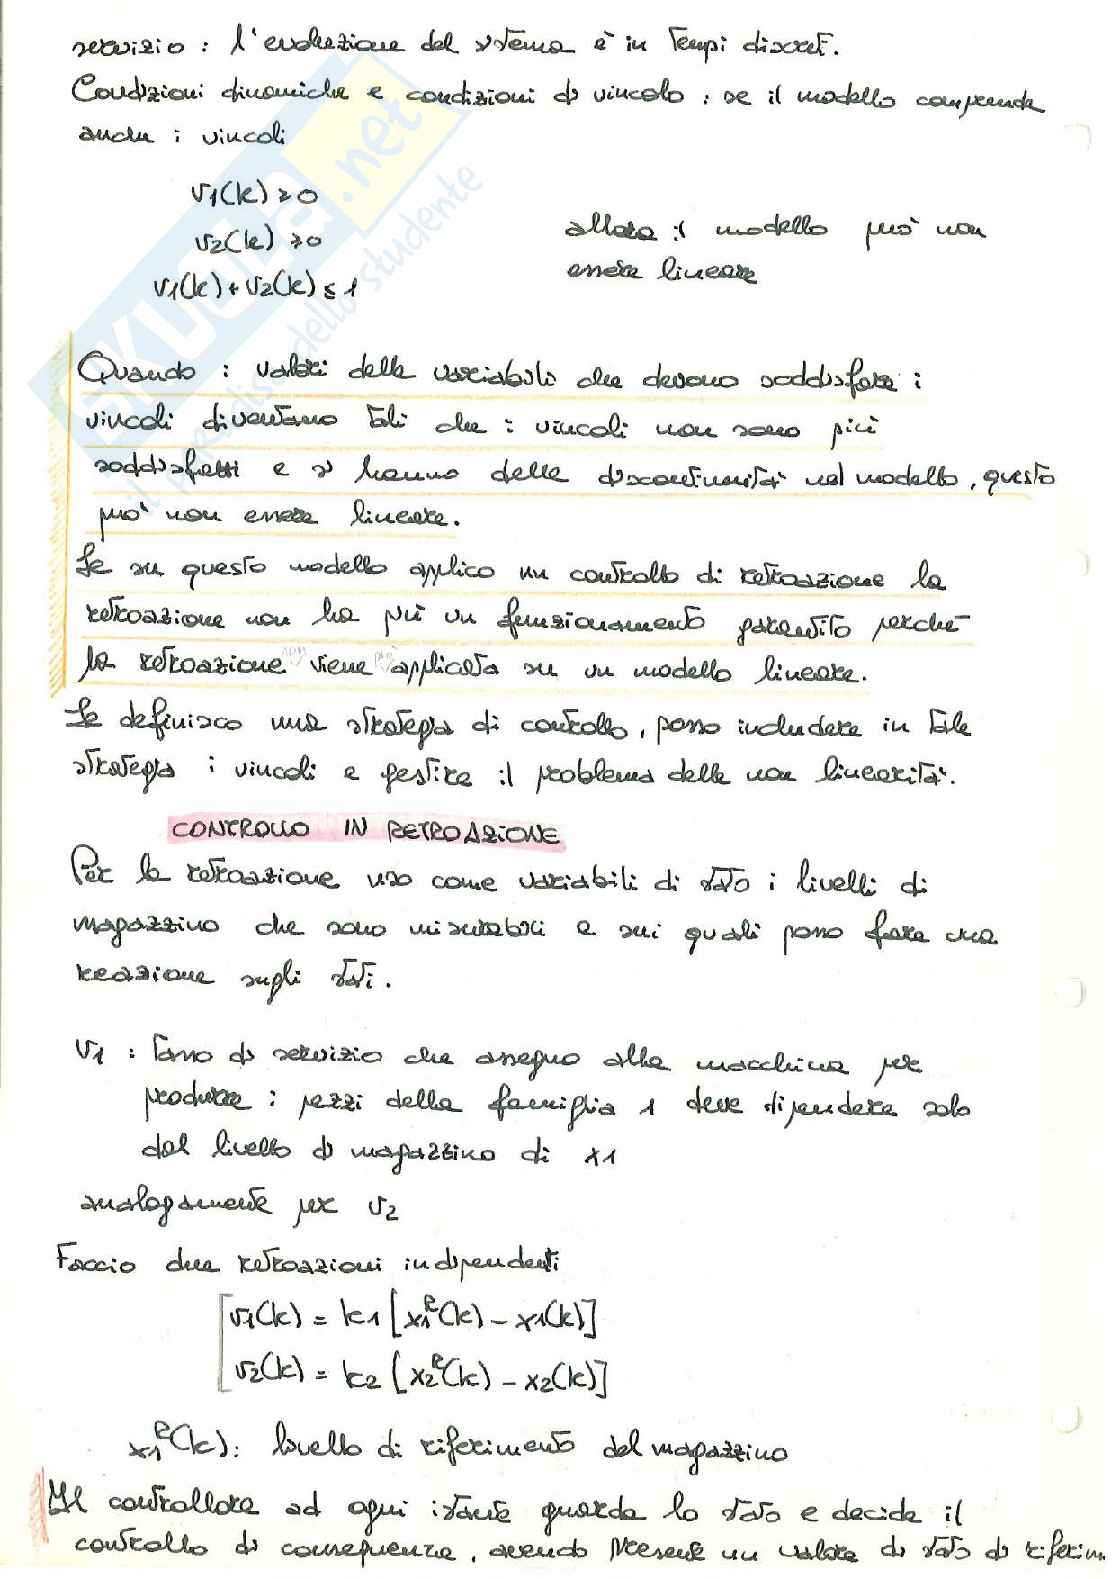 servizio : l'evoluzione del sistema è in tempi discreti.
Condizioni dinamiche e condizioni di vincolo : se il modello comprende
anche i vincoli
v1(k) ≥ 0
v2(k) ≥ 0
v1(k) + v2(k) ≤ 1
allora il modello può non
essere lineare
Quando i valori delle variabili che devono soddisfare i
vincoli diventano tali che i vincoli non sono più
soddisfatti e si hanno delle discontinuità nel modello, questo
può non essere lineare.
Se su questo modello applico un controllo di retroazione la
retroazione non ha più un funzionamento garantito perché
la retroazione viene applicata su un modello lineare.
Se definisco una strategia di controllo, posso includere in tale
strategia i vincoli e gestire il problema delle non linearità.
CONTROLLO IN RETROAZIONE
Per la retroazione uso come variabili di stato i livelli di
magazzino che sono misurabili e sui quali posso fare una
reazione sugli stati.
v1 : tasso di servizio che assegno alla macchina per
produrre i pezzi della famiglia 1 deve dipendere solo
dal livello di magazzino di x1
analogamente per v2
Faccio due retroazioni indipendenti
v1(k) = k1 [x1ᴿ(k) - x1(k)]
v2(k) = k2 [x2ᴿ(k) - x2(k)]
x1ᴿ(k): livello di riferimento del magazzino
Il controllore ad ogni istante guarda lo stato e decide il
controllo di conseguenza, avendo presente un valore di stato di riferim
SKUOLA.net
il paradiso dello studente